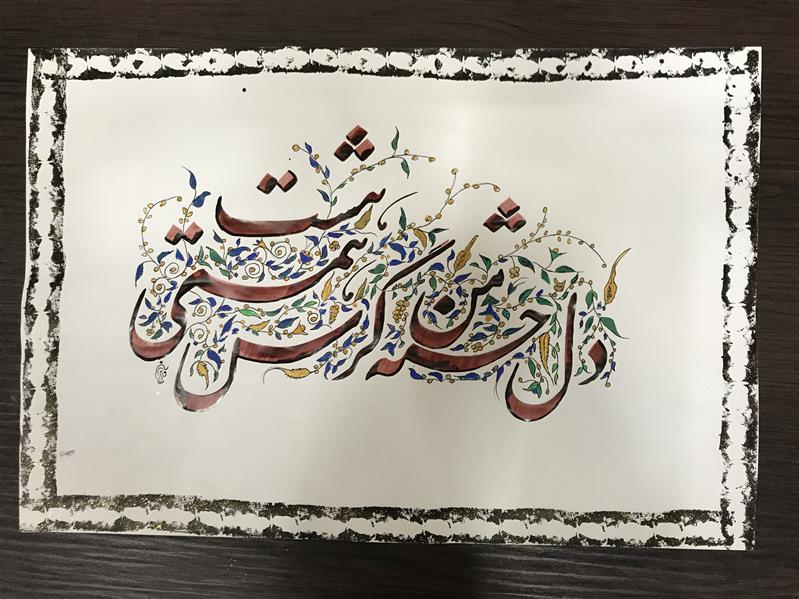 دل خسته من گرش همتی هست